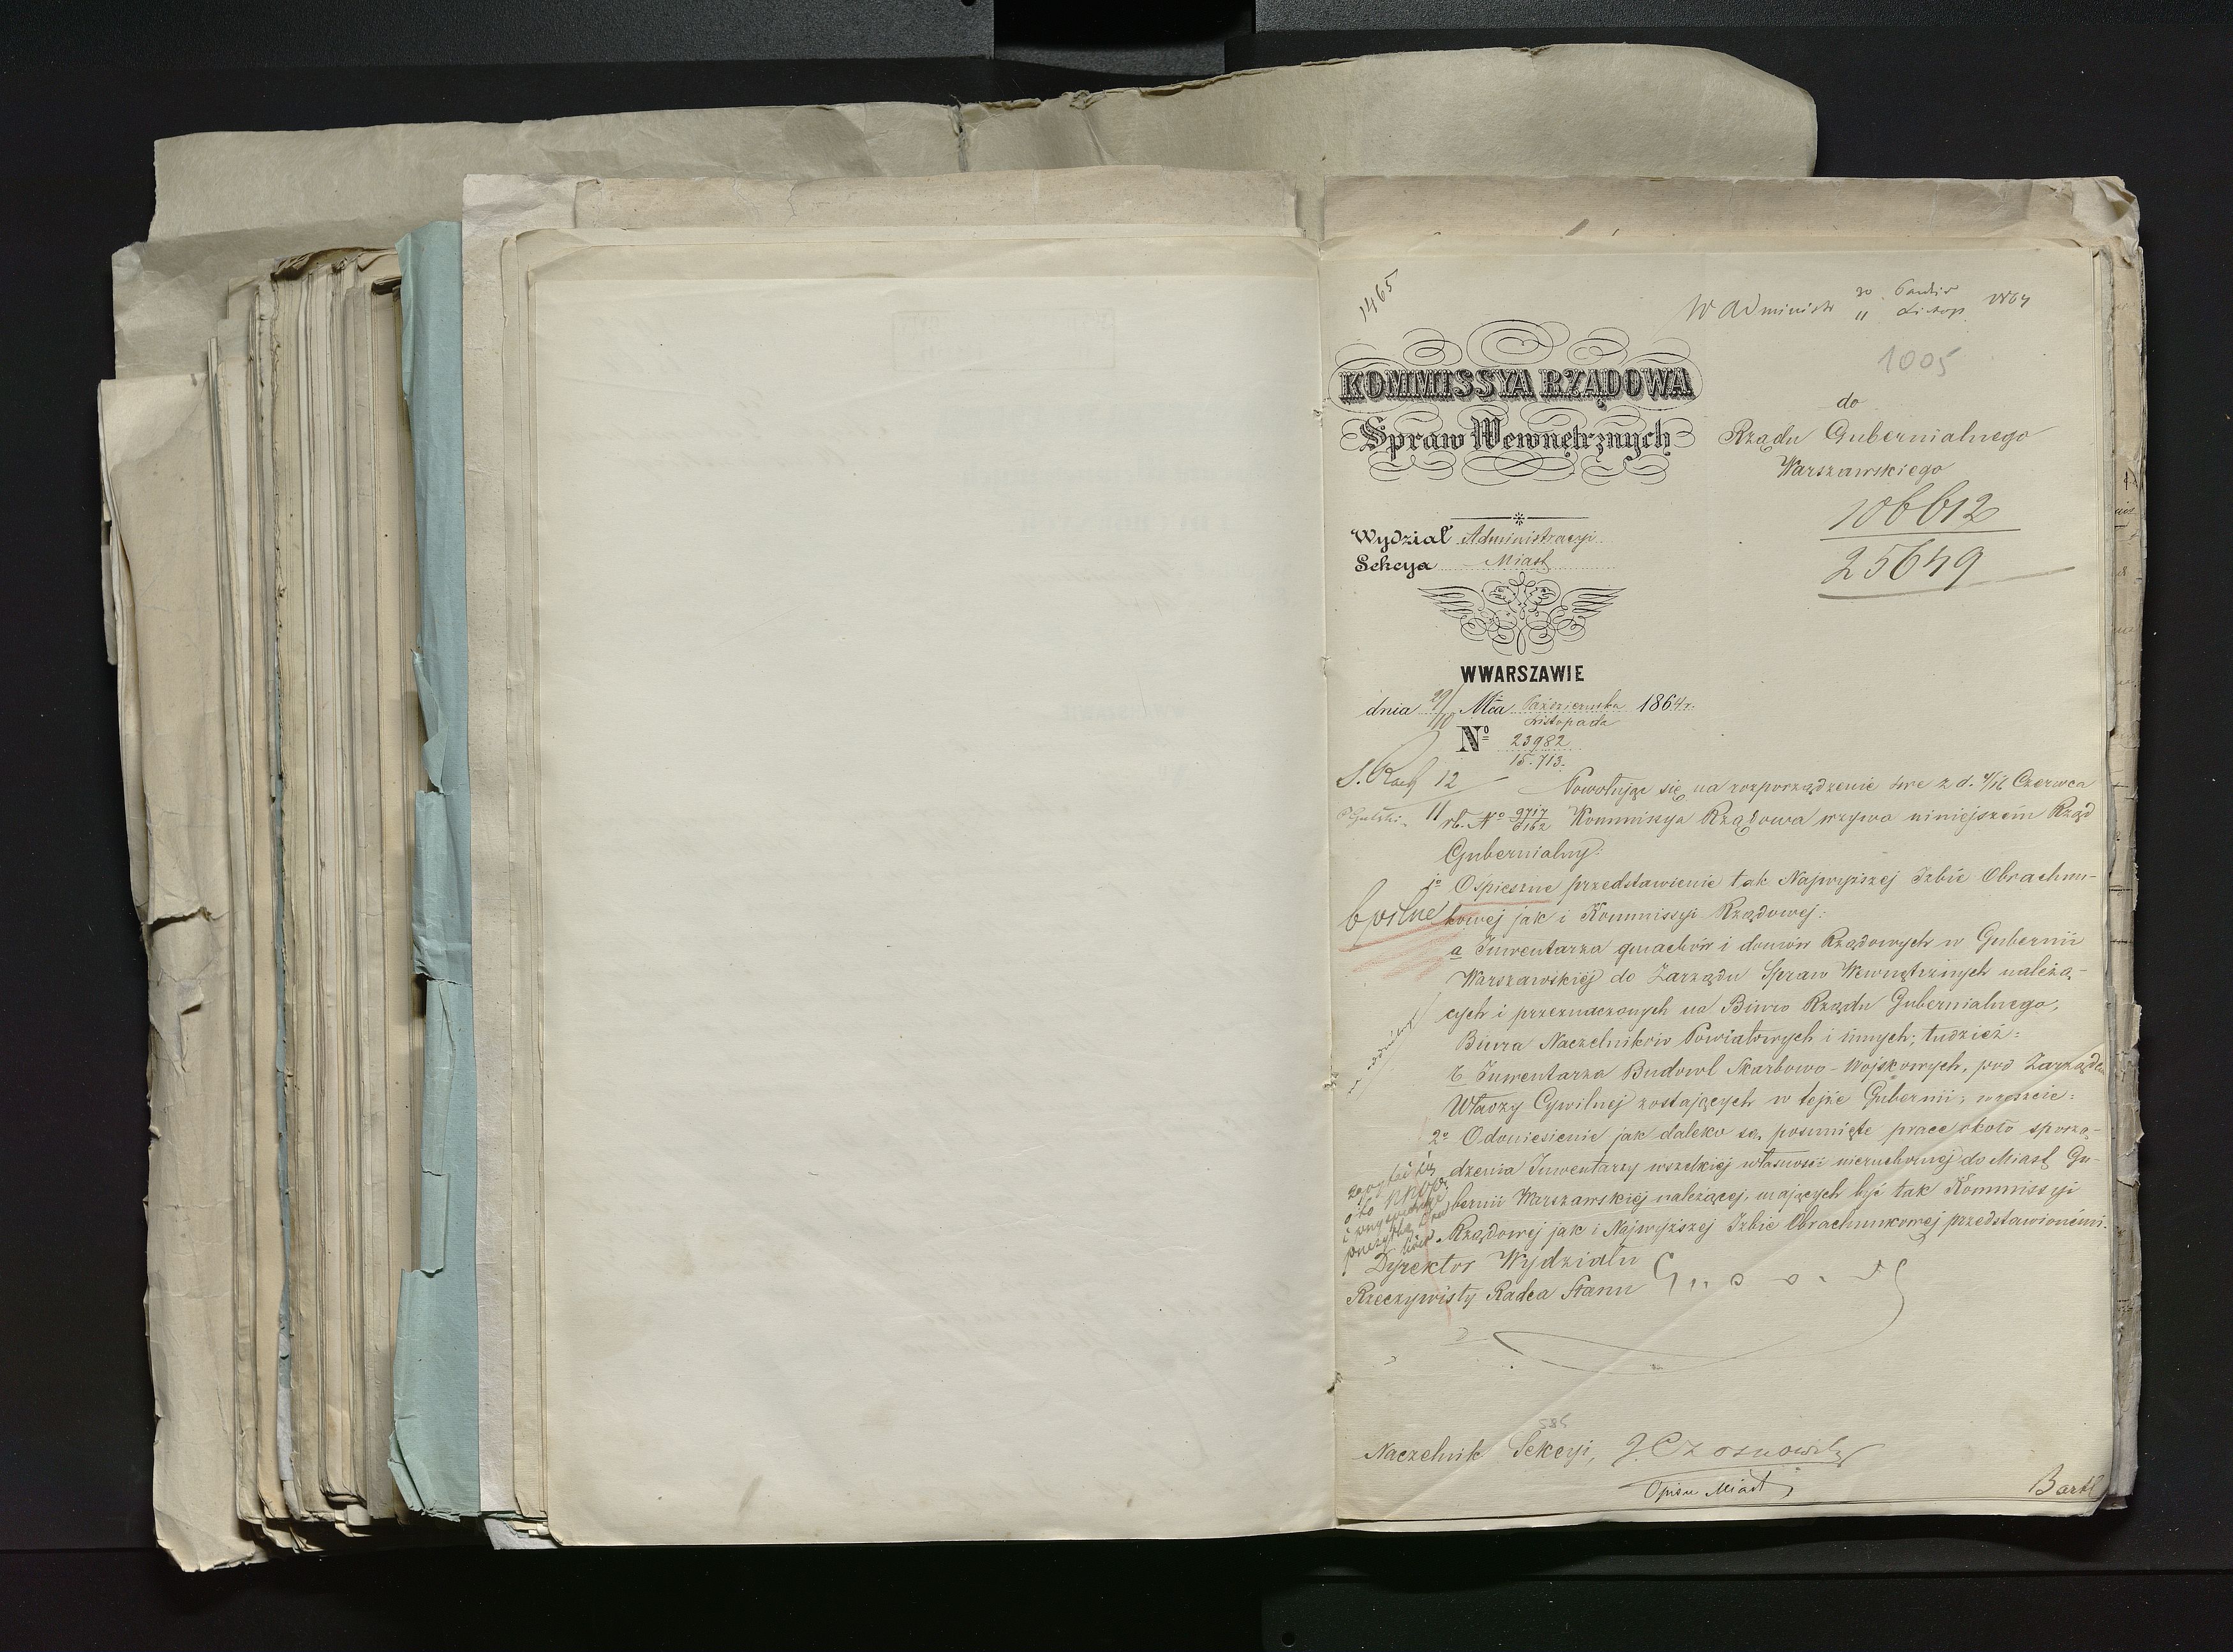 1465
W Administr 30 Paźdz 1864
11 Listop
1005
KOMMISSYA RZĄDOWA
Spraw Wewnętrznych
do
Rządu Gubernialnego
Warszawskiego
106612
25649
Wydział Administracyi
Sekcya Miast
W WARSZAWIE
dnia 29/10 Mca Października 1864 r.
Listopada
No 23982
15.713.
12
Powołując się na rozporządzenie swe z d. 4/16 Czerwca
11 rb. No 9717/6162 Kommissya Rządowa wzywa niniejszém Rząd
Gubernialny:
1o Ośpieszne przedstawienie tak Najwyższej Izbie Obrachun-
pilne
kowej jak i Kommissyi Rządowej:
a Inwentarza gmachów i domów Rządowych w Gubernii
Warszawskiéj do Zarządu Spraw Wewnętrznych należą-
cych i przeznaczonych na Biuro Rządu Gubernialnego,
Biura Naczelników Powiatowych i innych; tudzież:
b Inwentarza Budowl Skarbowo-Wojskowych, pod Zarządem
Władzy Cywilnej zostających w tejże Gubernii; wreszcie:
2o Odoniesienie jak daleko są posunięte prace około sporzą-
dzenia Inwentarzy wszelkiéj własność nieruchomej do Miast Gu-
bernii Warszawskiéj należącej, mających być tak Kommissyi
Rządowej jak i Najwyższej Izbie Obrachunkowej przedstawionémi.
Dyrektor Wydziału
Rzeczywisty Radca Stanu
Naczelnik Sekcyi, J. Czosnowski
Opisu Miast
Bartl